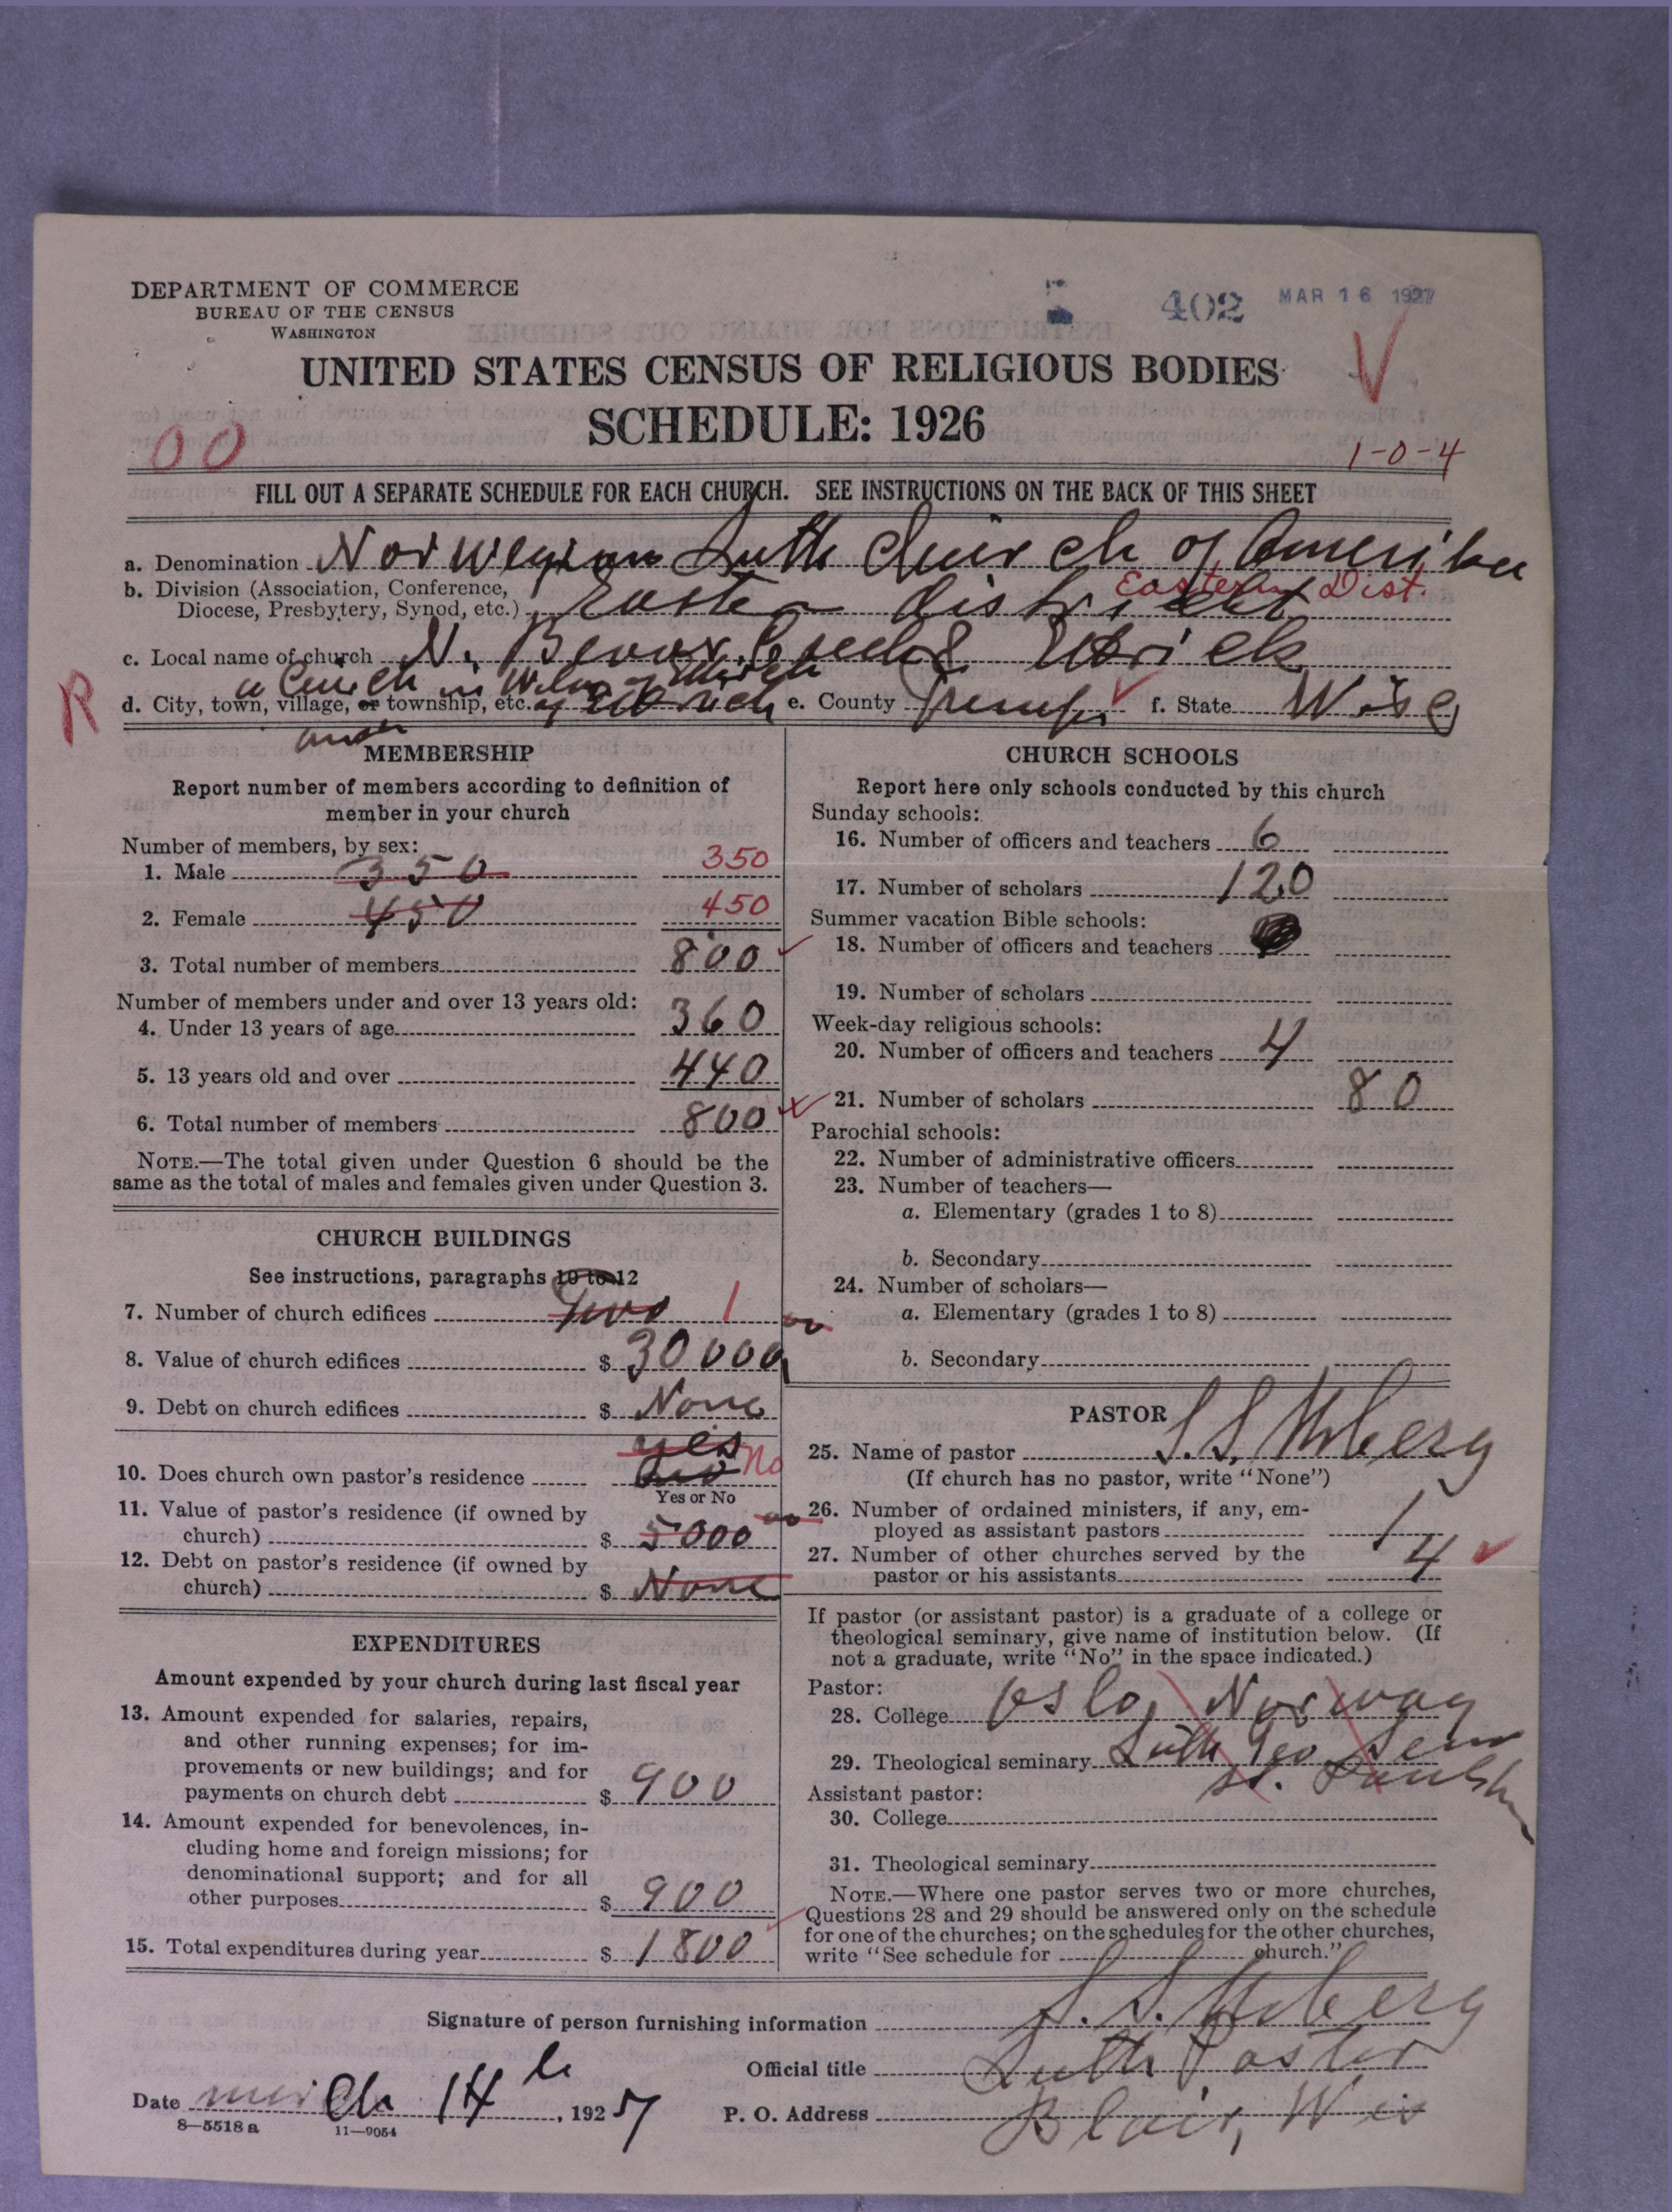 DEPARTMENT OF COMMERCE
BUREAU OF THE CENSUS
WASHINGTON
402 MAR 16 1927
UNITED STATES CENSUS OF RELIGIOUS BODIES
SCHEDULE: 1926
00
1-0-4
FILL OUT A SEPARATE SCHEDULE FOR EACH CHURCH. SEE INSTRUCTIONS ON THE BACK OF THIS SHEET
a. Denomination Norwegian Luth Church of Amerika
b. Division (Association, Conference, Diocese, Presbytery, Synod, etc.) Eastern district Eastern Dist.
c. Local name of church N. Beaver Creek & Ettrick
a Church in
R
d. City, town, village, or township, etc. of Ettrick e. County Tremp f. State Wisc
MEMBERSHIP
Report number of members according to definition of
member in your church
Number of members, by sex:
1. Male 350 350
2. Female 450 450
3. Total number of members 800
Number of members under and over 13 years old:
4. Under 13 years of age 360
5. 13 years old and over 440
6. Total number of members 800
NOTE.—The total given under Question 6 should be the
same as the total of males and females given under Question 3.
CHURCH BUILDINGS
See instructions, paragraphs 10 to 12
7. Number of church edifices Two 1
8. Value of church edifices $ 30000
9. Debt on church edifices $ None
yes
10. Does church own pastor's residence No
Yes or No
11. Value of pastor's residence (if owned by
church) $ 5000
12. Debt on pastor's residence (if owned by
church) $ None
EXPENDITURES
Amount expended by your church during last fiscal year
13. Amount expended for salaries, repairs,
and other running expenses; for im-
provements or new buildings; and for
payments on church debt $ 900
14. Amount expended for benevolences, in-
cluding home and foreign missions; for
denominational support; and for all
other purposes $ 900
15. Total expenditures during year $ 1800
CHURCH SCHOOLS
Report here only schools conducted by this church
Sunday schools:
16. Number of officers and teachers 6
17. Number of scholars 120
Summer vacation Bible schools:
18. Number of officers and teachers
19. Number of scholars
Week-day religious schools:
20. Number of officers and teachers 4
21. Number of scholars 80
Parochial schools:
22. Number of administrative officers
23. Number of teachers—
a. Elementary (grades 1 to 8)
b. Secondary
24. Number of scholars—
a. Elementary (grades 1 to 8)
b. Secondary
PASTOR
25. Name of pastor S. S. Urberg
(If church has no pastor, write "None")
26. Number of ordained ministers, if any, em-
ployed as assistant pastors 1
27. Number of other churches served by the
pastor or his assistants 4
If pastor (or assistant pastor) is a graduate of a college or
theological seminary, give name of institution below. (If
not a graduate, write "No" in the space indicated.)
Pastor:
28. College Oslo, Norway
29. Theological seminary Luth Teo Sem
St. Paul
Assistant pastor:
30. College
31. Theological seminary
NOTE.—Where one pastor serves two or more churches,
Questions 28 and 29 should be answered only on the schedule
for one of the churches; on the schedules for the other churches,
write "See schedule for church."
Signature of person furnishing information S. S. Urberg
Official title Luth Pastor
Date March 14th, 1927 P. O. Address Blair, Wis
8—5518a 11—9054